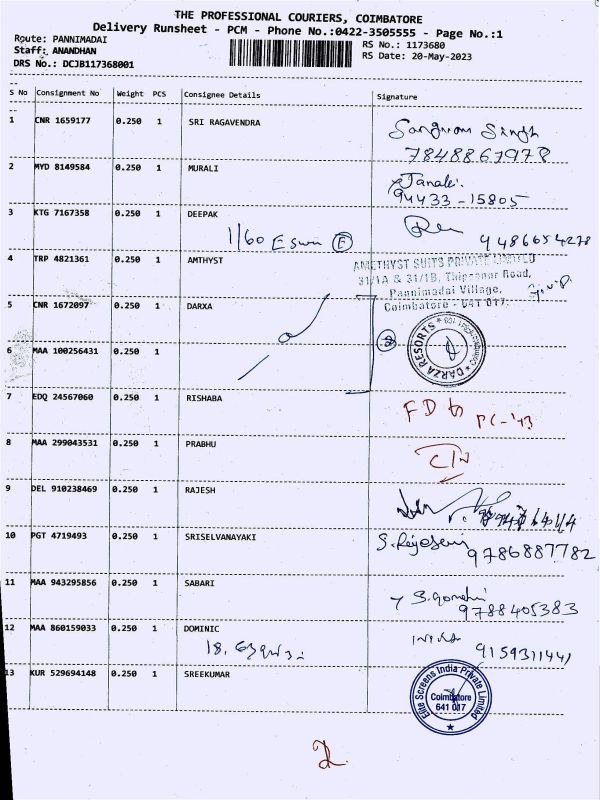 THE PROFESSIONAL COURIERS, COIMBATORE
Delivery Runsheet - PCM - Phone No.:0422-3505555 - Page No.:1
Route: PANNIMADAI
RS No.: 1173680
Staff: ANANDHAN
RS Date: 20-May-2023
DRS No.: DCJB117368001
S No Consignment No Weight PCS Consignee Details Signature
1 CNR 1659177 0.250 1 SRI RAGAVENDRA
Singh
7848867978
2 MYD 8149584 0.250 1 MURALI
Janaki
94433-15805
3 KTG 7167358 0.250 1 DEEPAK
9486654278
1/60 Eswn E
4 TRP 4821361 0.250 1 AMTHYST
AMETHYST SUITS PRIVATE LIMITED
31/1A & 31/1B, Road,
Pannimadai Village,
Coimbatore - 641 017.
5 CNR 1672097 0.250 1 DARXA
DARZA RESORTS
6 MAA 100256431 0.250 1
7 EDQ 24567060 0.250 1 RISHABA
FD to
8 MAA 299043531 0.250 1 PRABHU
9 DEL 910238469 0.250 1 RAJESH
10 PGT 4719493 0.250 1 SRISELVANAYAKI
9786887782
11 MAA 943295856 0.250 1 SABARI
9788405383
12 MAA 860159033 0.250 1 DOMINIC
18,
9159311441
13 KUR 529694148 0.250 1 SREEKUMAR
Elite Screens India Private Limited
Coimbatore
641 017